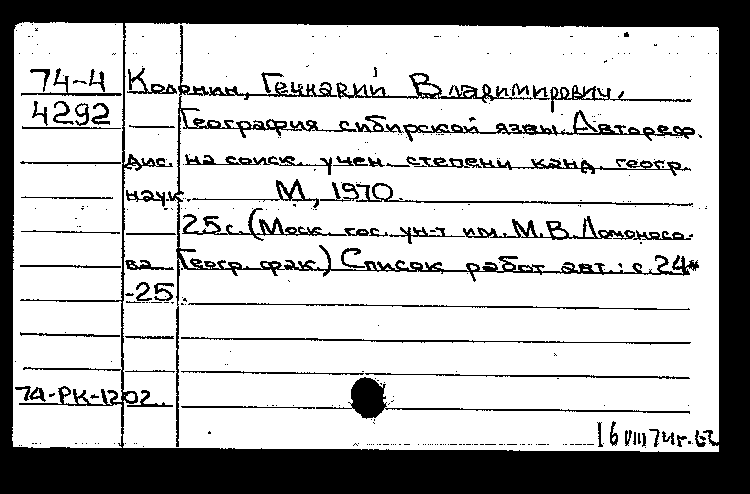 74-4 Колонин, Геннадий Владимирович.
4292 География сибирской язвы. Автореф.
дис. на соиск. учен. степени канд. геогр.
наук. М, 1970.
25 с. (Моск. гос. ун-т им. М.В. Ломоносо-
ва Геогр. фак.) Список работ авт.: с. 24*
-25.
74-РК-1202.
16 VIII 74г.